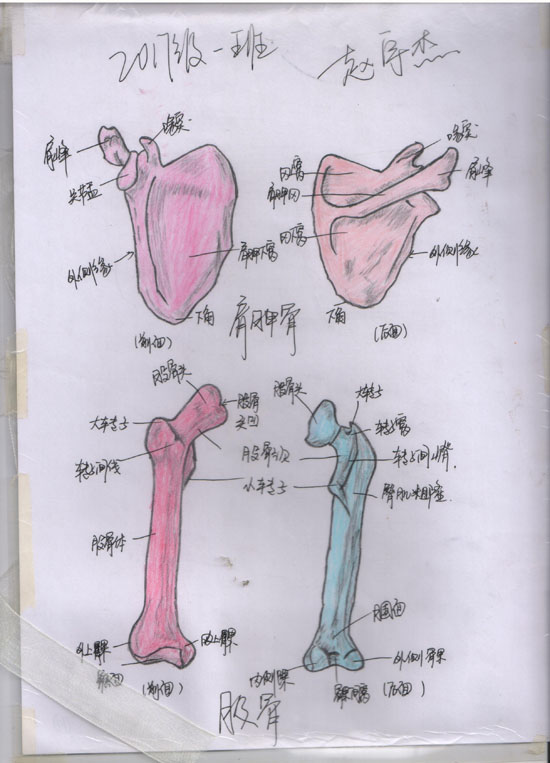 2017级一班 赵宇杰
喙突
肩峰
关节盂
外侧缘
肩胛下窝
下角
(前面)
喙突
肩峰
冈窝
肩胛冈
冈窝
外侧缘
下角
(后面)
肩胛骨
股骨头
股骨头凹
大转子
转子间线
股骨颈
小转子
股骨体
外上髁
内上髁
髌面
(前面)
股骨头
大转子
转子窝
转子间嵴
臀肌粗隆
腘面
内侧髁
外侧髁
髁间窝
(后面)
股骨